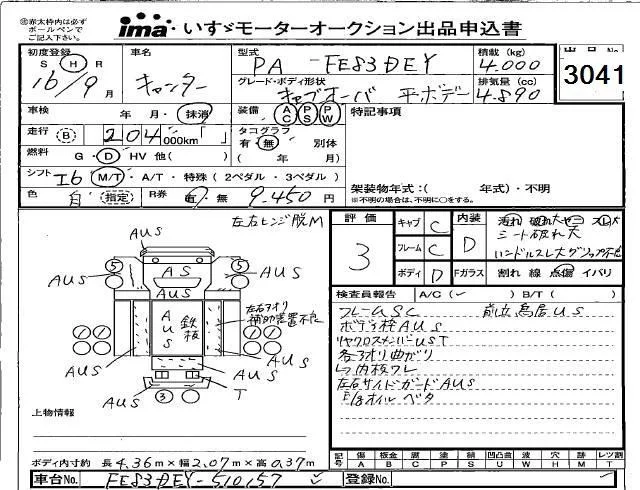 ㊟赤太枠内は必ず
ボールペンで
ご記入下さい。
ima いすゞモーターオークション出品申込書
初度登録
S H R
16/9月
車名
キャンター
型式
PA - FE83DEY
積載 (kg)
4.000
出品No.
3041
グレード・ボディ形状
キャブオーバ 平ボデー
排気量 (cc)
4.890
車検 年 月・抹消
装備 AC PS PW
特記事項
走行 B 204,000km「 」
タコグラフ
有・無 別体
( 年 月)
燃料 G・D・HV 他( )
シフト I6 M/T・A/T・特殊(2ペダル・3ペダル)
架装物年式:( 年式)・不明
※不明の場合は、不明に○をする。
色 白 指定 R券 有・無 9.450円
左右ヒンジ脱M
評価
3
キャブ C
フレーム C
ボディ D
内装 D
汚れ 破れ大 スレ大
シート破れ大
ハンドルスレ大
Fガラス 割れ 線 点傷 イバリ
検査員報告 A/C(✓) B/T( )
AUS
AUS
AUS
5
5
AS
AUS
AUS
鉄板
左右アオリ
補助装置不良
AUS
AUS
AUS
3
T
フレームSC
前立鳥居US
ボデー枠AUS
リヤクロスメンバーUST
各アオリ曲がり
内板ワレ
左右サイドガードAUS
E/gオイルベタ
上物情報
記号 傷A 板金B 腐C 塗P 錆S 凹凸曲U 波W 穴H 跡M レツ割T
ボディ内寸約 長4.36m×幅2.07m×高0.37m
車台No. FE83DEY-510157 ✓
登録No.